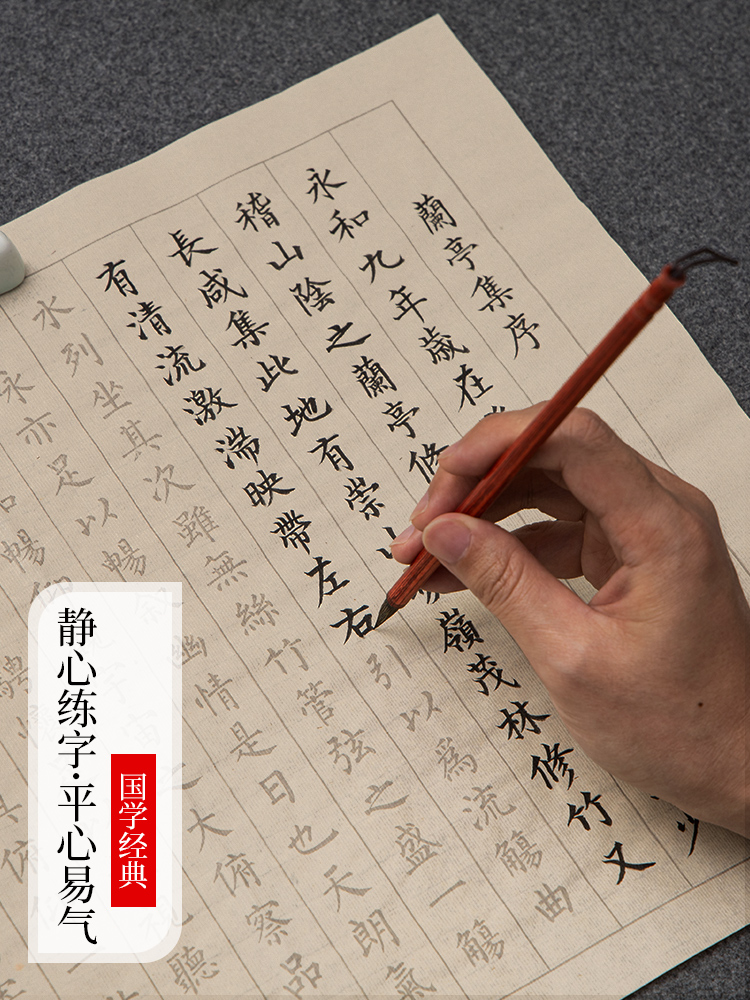 蘭亭集序
永和九年歲在
稽山陰之蘭亭修
長咸集此地有崇山嶺茂林修竹又
有清流激湍映帶左右引以爲流觴曲
水列坐其次雖無絲竹管弦之盛一觴
亦足以暢幽情是日也天朗氣
暢仰之大俯察品
騁聽
静心练字·平心易气
国学经典